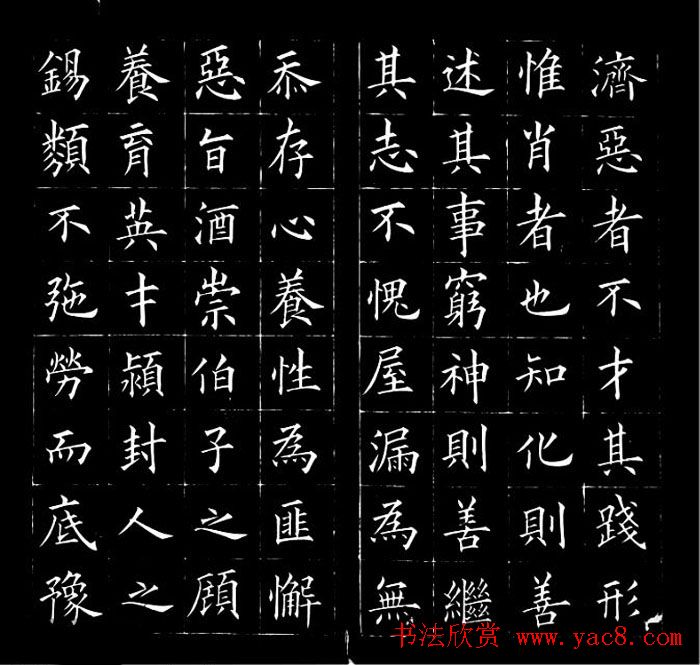 濟惡者不才其踐形
惟肖者也知化則善
述其事窮神則善繼
其志不愧屋漏為無
忝存心養性為匪懈
惡旨酒崇伯子之顧
養育英才潁封人之
錫類不㢮勞而底豫
书法欣赏 www.yac8.com